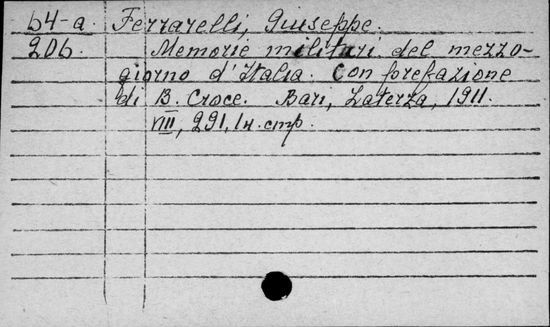 64-a. Ferrarelli, Giuseppe.
206. Memorie militari del mezzo-
giorno d'Italia. Con prefazione
di B. Croce. Bari, Laterza, 1911.
VIII, 291, 1 н. стр.